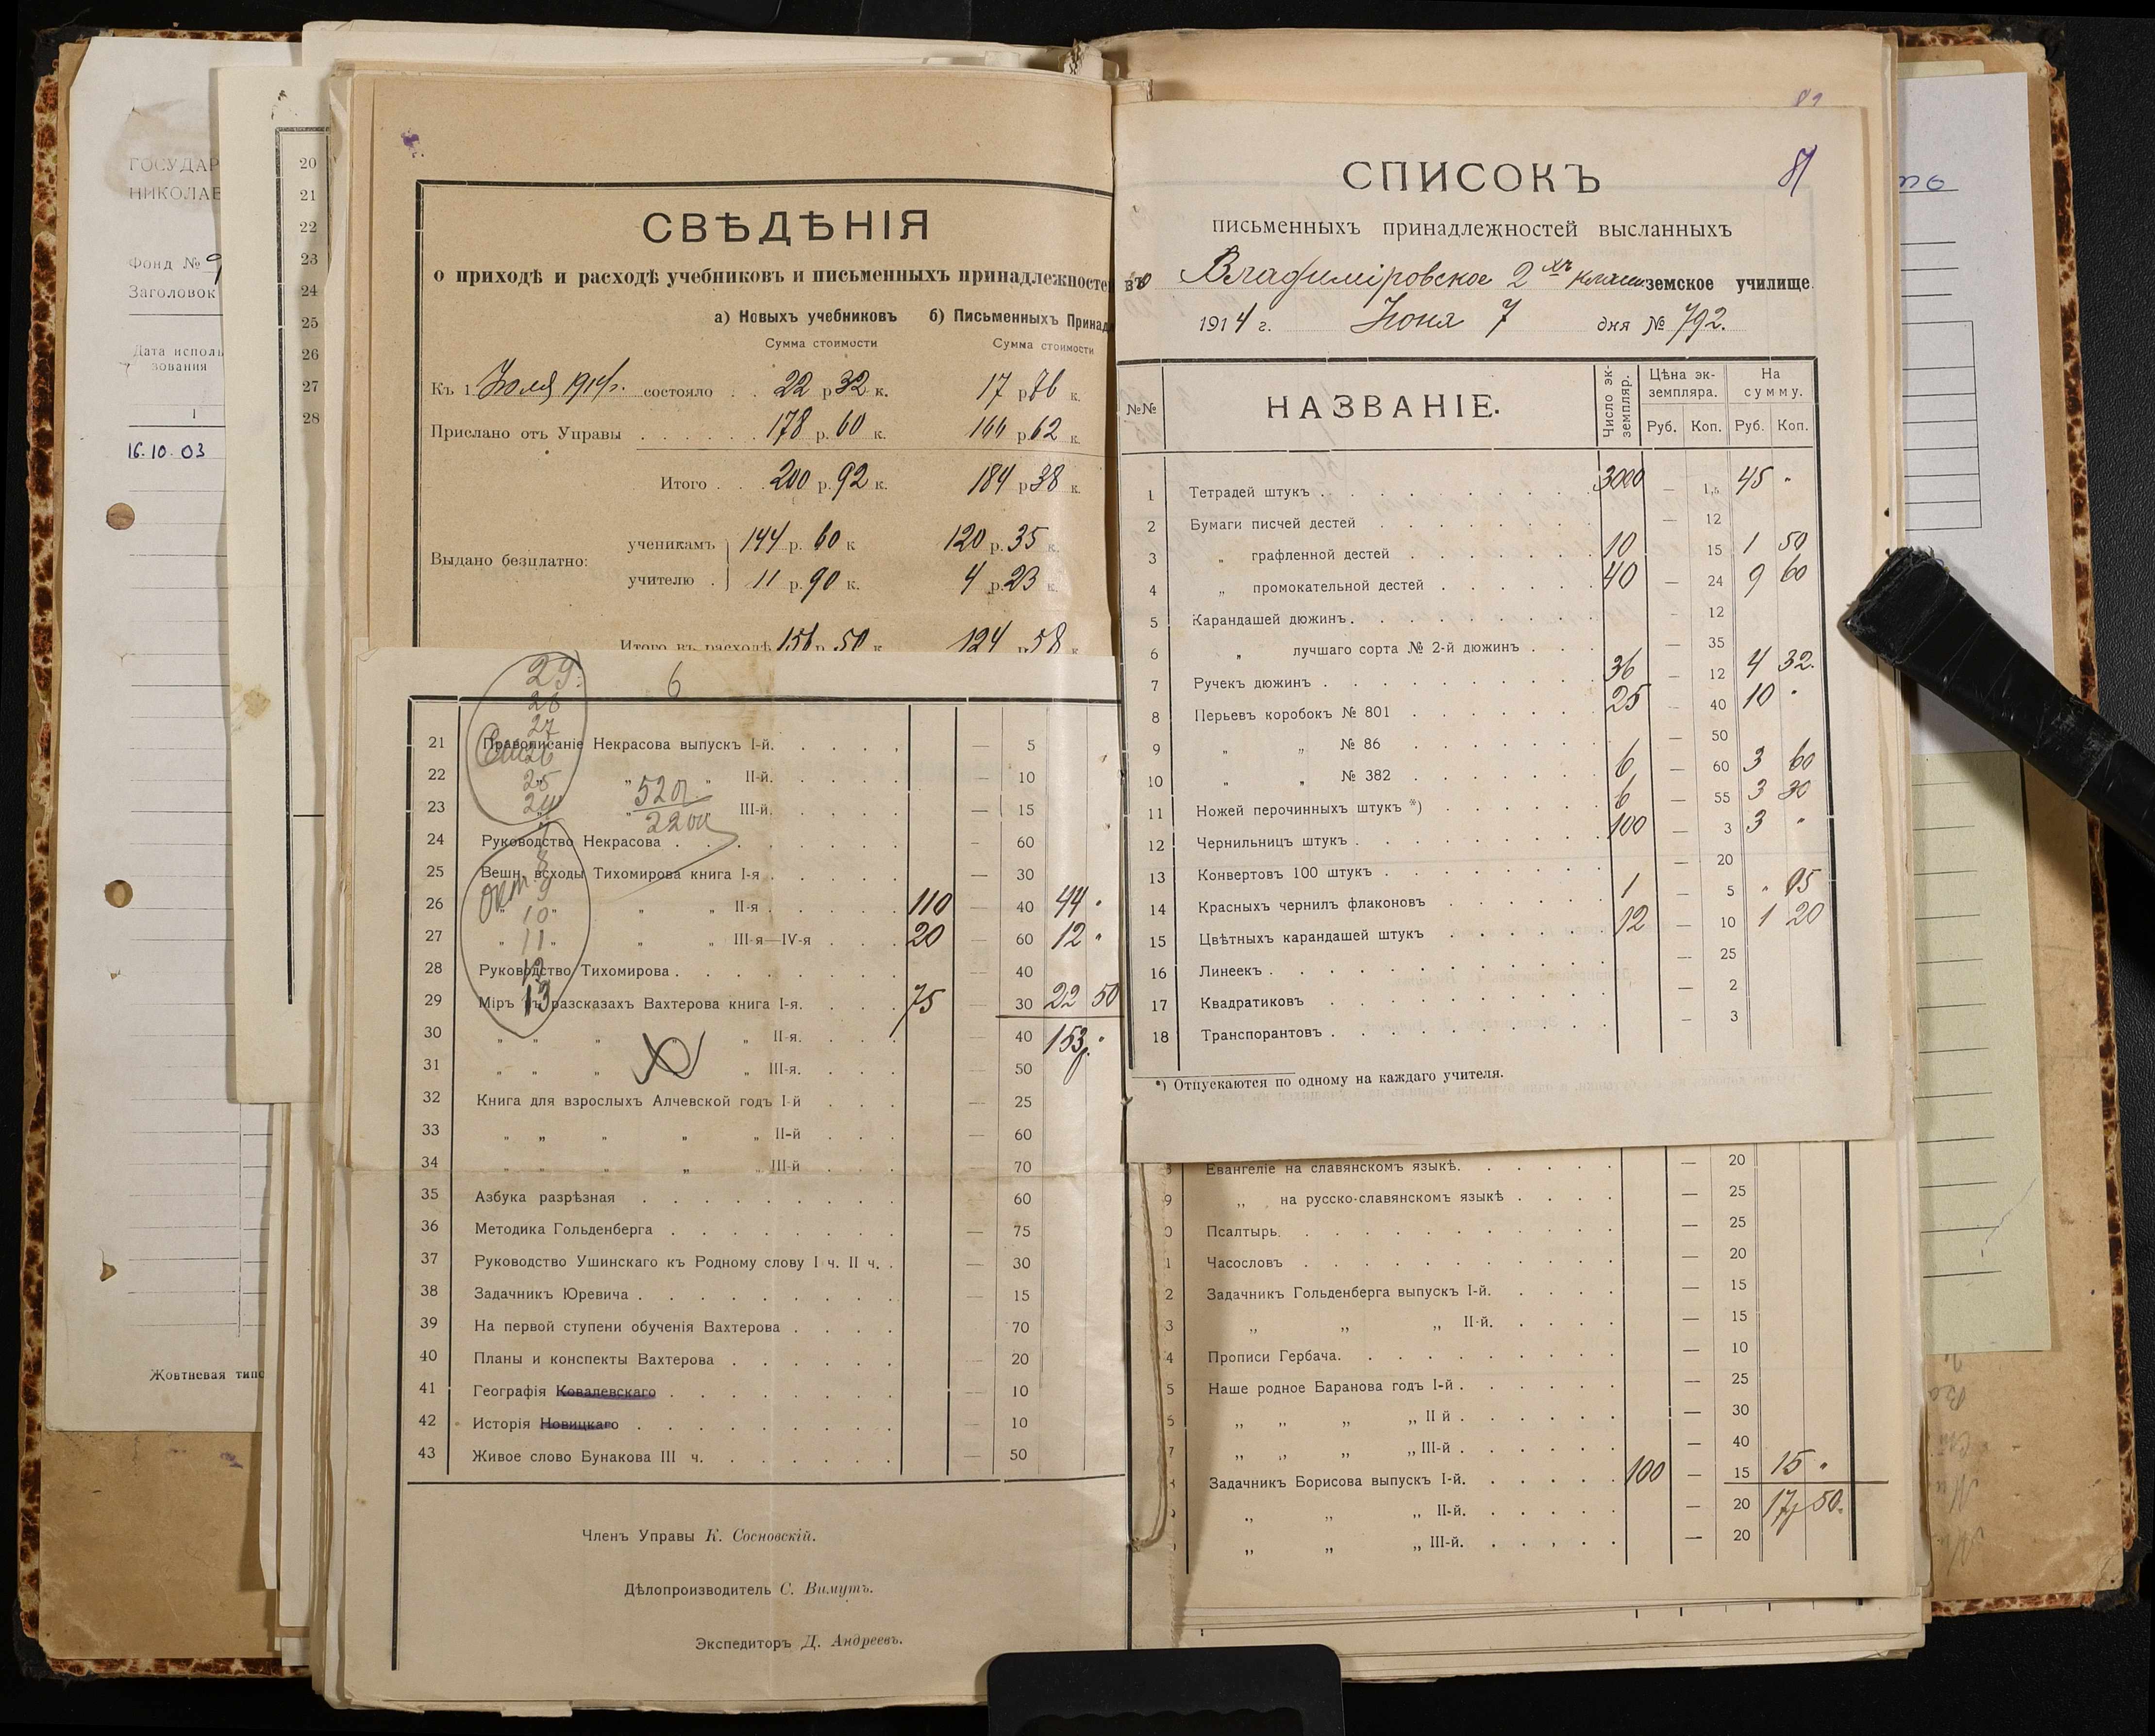 ГОСУДАР
НИКОЛАЕ
Фонд № 9
Заголовок
Дата исполь
зования
1
16.10.03
Жовтневая типо
20
21
22
23
24
25
26
27
28
СВѢДѢНІЯ
о приходѣ и расходѣ учебниковъ и письменныхъ принадлежносте
а) Новыхъ учебниковъ б) Письменныхъ Принад
Сумма стоимости Сумма стоимости
Къ 1 Июля 1914 г. состояло . . 22 р 32 к. 17 р 76 к.
Прислано отъ Управы . . . . . . 178 р. 60 к. 166 р. 62 к.
Итого . . . 200 р. 92 к. 184 р 38 к.
Выдано безплатно:
ученикамъ 144 р. 60 к 120 р. 35 к.
учителю . 11 р. 90 к. 4 р. 23 к.
Итого въ расходѣ 156 р. 50 к 124 р. 58 к
29.
28
27
26
25
24
6
520
2200
окт.
8
9
10
11
12
13
21 Правописаніе Некрасова выпускъ I-й. . . . . — 5
22 „ „ „ II-й. . . . . — 10
23 „ „ III-й. . . . . — 15
24 Руководство Некрасова . . . . . . . . — 60
25 Вешн. всходы Тихомирова книга I-я . . . . . — 30
26 „ „ „ „ II-я . . . . . 110 — 40 44 "
27 „ „ „ „ III-я—IV-я . . . 20 — 60 12 "
28 Руководство Тихомирова . . . . . . . . — 40
29 Міръ въ разсказахъ Вахтерова книга I-я. . . . 75 — 30 22 50
30 „ „ „ „ „ II-я. . . . — 40 153 р. "
31 „ „ „ „ III-я. . . . — 50
32 Книга для взрослыхъ Алчевской годъ I-й . . . — 25
33 „ „ „ „ „ II-й . . . — 60
34 „ „ „ „ „ III-й . . . — 70
35 Азбука разрѣзная . . . . . . . . . — 60
36 Методика Гольденберга . . . . . . . . — 75
37 Руководство Ушинскаго къ Родному слову I ч. II ч. . — 30
38 Задачникъ Юревича . . . . . . . . . — 15
39 На первой ступени обученія Вахтерова . . . . — 70
40 Планы и конспекты Вахтерова . . . . . . — 20
41 Географія Ковалевскаго . . . . . . . . — 10
42 Исторія Новицкаго . . . . . . . . . — 10
43 Живое слово Бунакова III ч. . . . . . . — 50
Членъ Управы К. Сосновскій.
Дѣлопроизводитель С. Вимутъ.
Экспедиторъ Д. Андреевъ.
СПИСОКЪ
81
письменныхъ принадлежностей высланныхъ
въ Владиміровское 2хъ класн. земское училище
1914 г. Июня 7 дня № 792.
№№ НАЗВАНІЕ. Число эк-земпляр. Цѣна эк-земпляра. На сумму.
Руб. Коп. Руб. Коп.
1 Тетрадей штукъ . . . . . . . . . . 3000 — 1,5 45 "
2 Бумаги писчей дестей . . . . . . . . — 12
3 „ графленной дестей . . . . . . . 10 15 1 50
4 „ промокательной дестей . . . . . . 40 — 24 9 60
5 Карандашей дюжинъ . . . . . . . . . — 12
6 „ лучшаго сорта № 2-й дюжинъ . . . — 35
7 Ручекъ дюжинъ . . . . . . . . . . 36 — 12 4 32.
8 Перьевъ коробокъ № 801 . . . . . . . 25 — 40 10 "
9 „ „ № 86 . . . . . . . 50
10 „ „ № 382 . . . . . . . 6 — 60 3 60
11 Ножей перочинныхъ штукъ *) . . . . . . 6 — 55 3 30
12 Чернильницъ штукъ . . . . . . . . . 100 — 3 3 "
13 Конвертовъ 100 штукъ . . . . . . . . — 20
14 Красныхъ чернилъ флаконовъ . . . . . . 1 — 5 " 05
15 Цвѣтныхъ карандашей штукъ . . . . . . 12 — 10 1 20
16 Линеекъ . . . . . . . . . . . — 25
17 Квадратиковъ . . . . . . . . . — 2
18 Транспорантовъ . . . . . . . . . — 3
*) Отпускаются по одному на каждаго учителя.
8 Евангеліе на славянскомъ языкѣ. . . . . . — 20
9 „ на русско-славянскомъ языкѣ . . . . — 25
0 Псалтырь. . . . . . . . . . . — 25
1 Часословъ . . . . . . . . . . — 20
2 Задачникъ Гольденберга выпускъ I-й. . . . . — 15
3 „ „ „ II-й. . . . . — 15
4 Прописи Гербача. . . . . . . . . . — 10
5 Наше родное Баранова годъ I-й . . . . . . — 25
6 „ „ „ „ II й . . . . . . — 30
7 „ „ „ „ III-й . . . . . . — 40
Задачникъ Борисова выпускъ I-й. . . . . . 100 — 15 15 "
„ „ „ II-й. . . . . . — 20 17 р 50.
„ „ „ III-й. . . . . . — 20